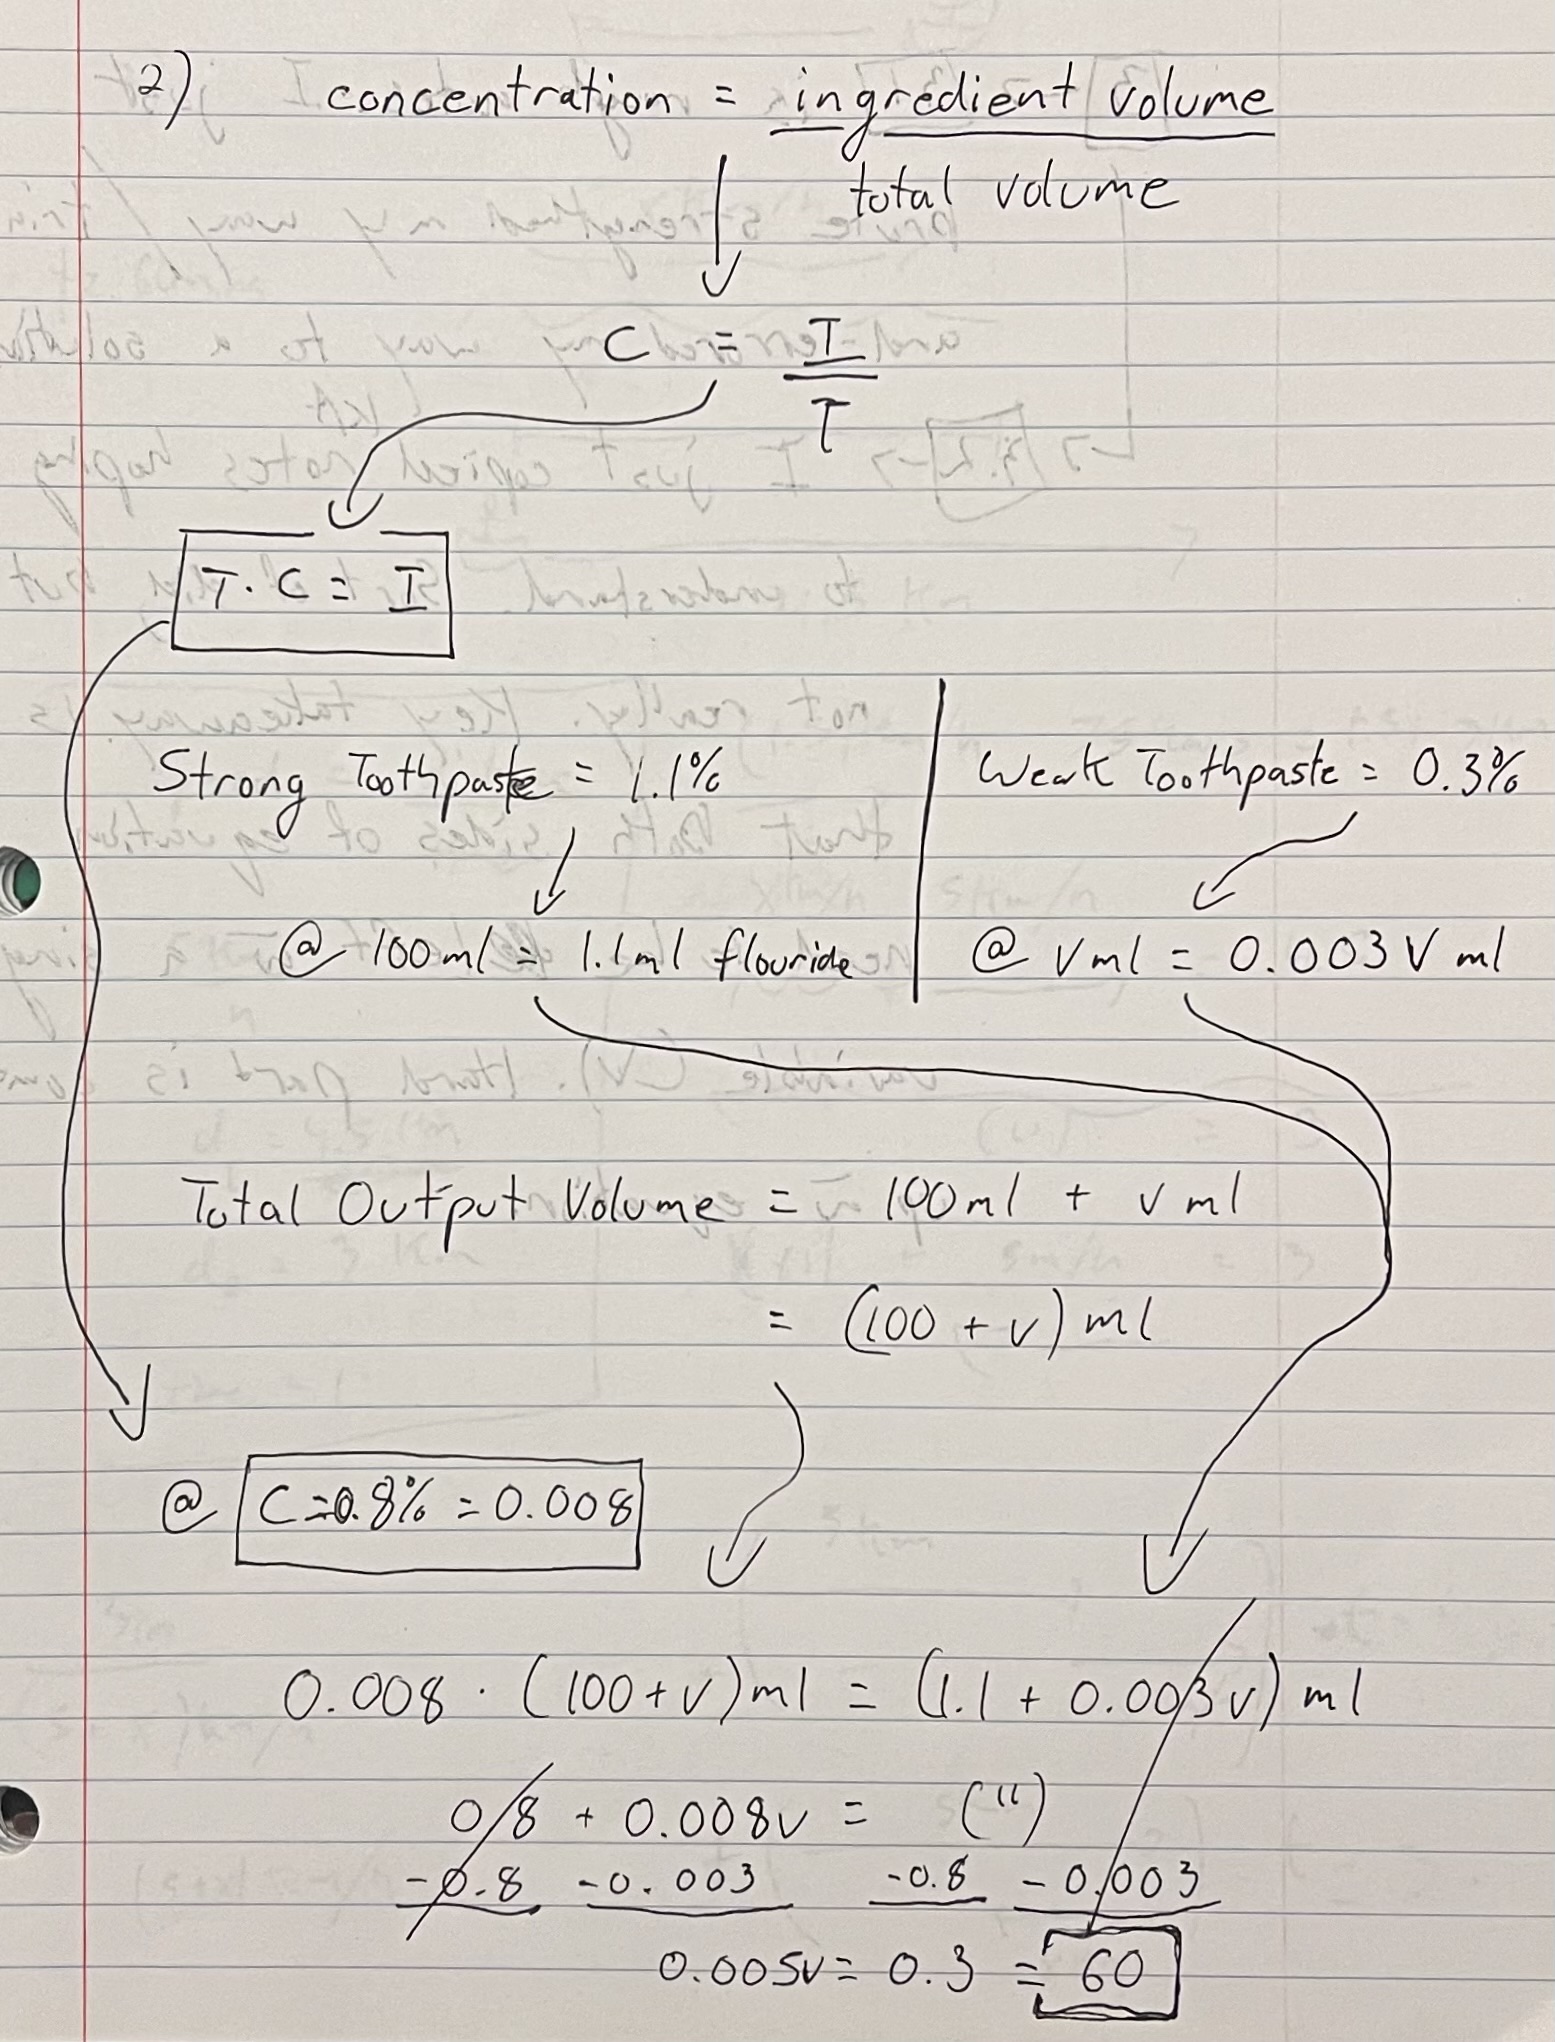 2) concentration = ingredient volume
total volume
C = I
T
T · C = I
Strong Toothpaste = 1.1%
Weak Toothpaste = 0.3%
@ 100ml = 1.1ml flouride
@ v ml = 0.003 V ml
Total Output Volume = 100ml + v ml
= (100 + v) ml
@ C=0.8% = 0.008
0.008 · (100+v) ml = (1.1 + 0.003v) ml
0.8 + 0.008v = (")
-0.8 -0.003 -0.8 -0.003
0.005v = 0.3 = 60